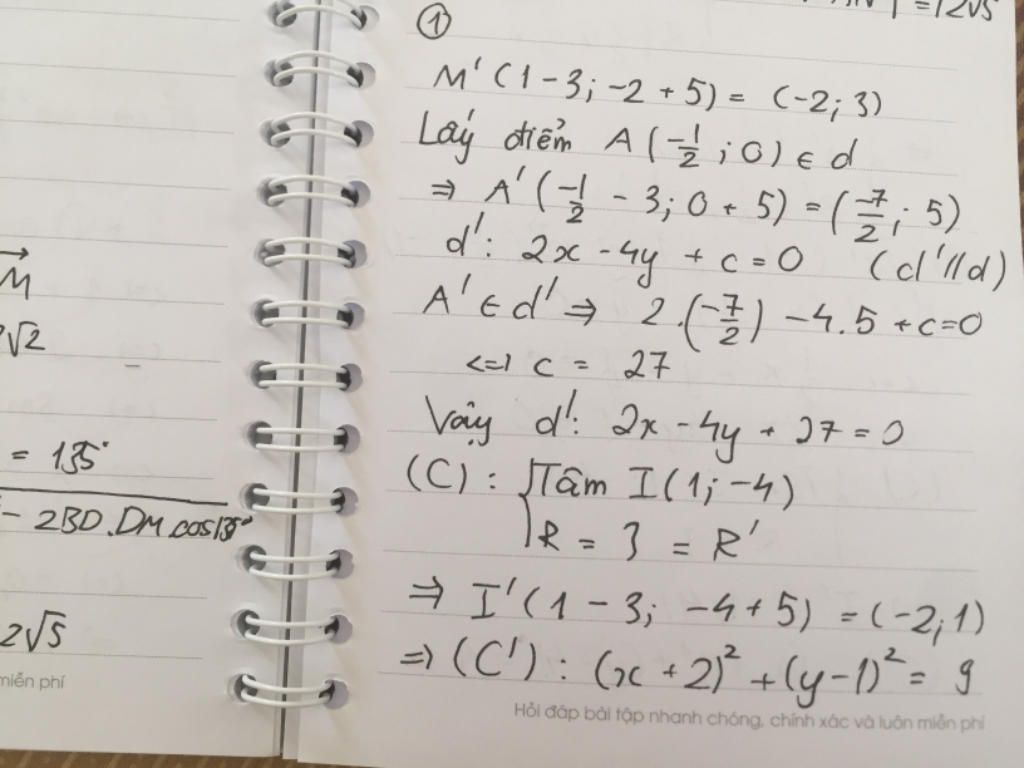 M
√2
= 135°
- 2BD.DM.cos135°
2√5
miễn phí
= 12√5
①
M' (1 - 3; -2 + 5) = (-2; 3)
Lấy điểm A (-1/2 ; 0) ∈ d
⇒ A' (-1/2 - 3; 0 + 5) = (-7/2; 5)
d': 2x - 4y + c = 0 (d' // d)
A' ∈ d' ⇒ 2.(-7/2) - 4.5 + c = 0
<=> c = 27
Vậy d': 2x - 4y + 27 = 0
(C) : { Tâm I (1; -4)
R = 3 = R'
⇒ I' (1 - 3; -4 + 5) = (-2; 1)
⇒ (C') : (x + 2)² + (y - 1)² = 9
Hỏi đáp bài tập nhanh chóng, chính xác và luôn miễn phí